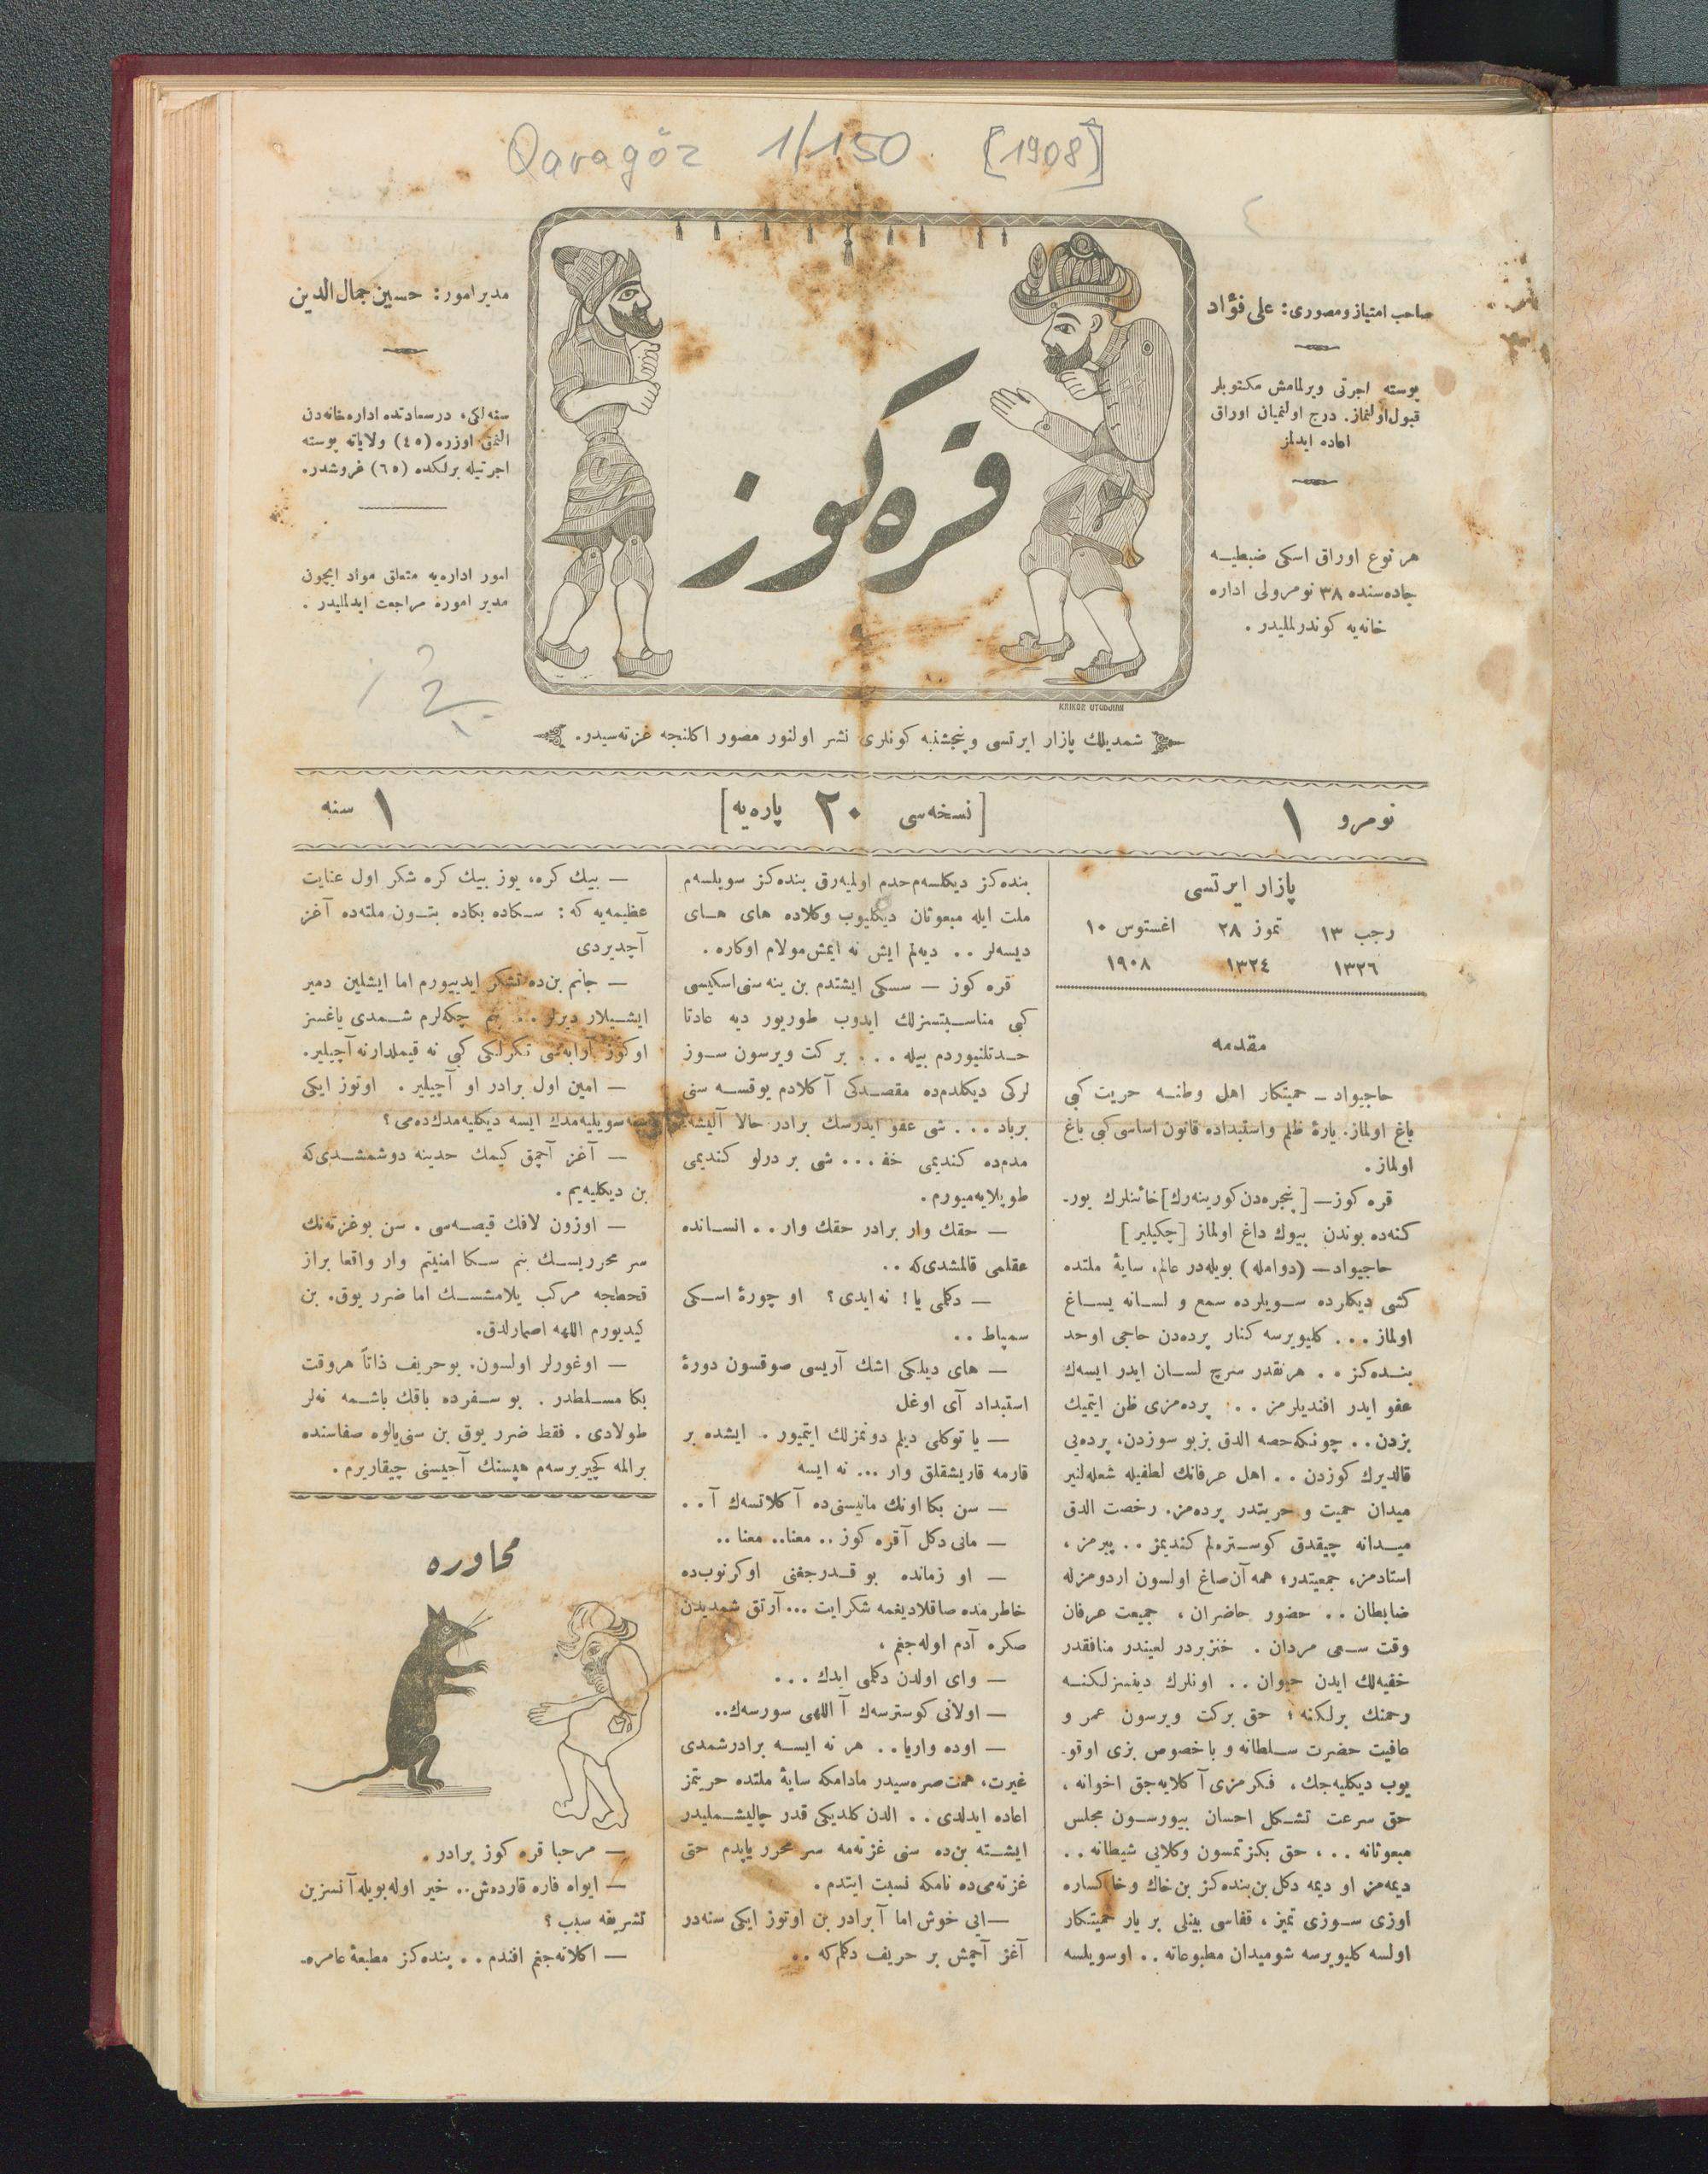 Qaragöz 1/150 [1908]
صاحب امتیاز و مصوری: علی فؤاد
پوسته اجرتی ویرلمامش مکتوبلر
قبول اولنماز. درج اولنمیان اوراق
اعاده ایدلمز
هر نوع اوراق اسکی ضبطیه
جاده‌سنده ٣٨ نومرولی اداره
خانه‌یه کوندرلملیدر .
قره‌کوز
KRIKOR UTUDJIAN
مدیر امور: حسین جمال‌الدین
سنه‌لکی، درسعادتده اداره‌خانه‌دن
آلنمق اوزره (٤٥) ولایاته پوسته
اجرتیله برلکده (٦٥) غروشدر.
امور اداره‌یه متعلق مواد ایچون
مدیر اموره مراجعت ایدلملیدر .
شمدیلك پازار ایرتسی و پنجشنبه کونلری نشر اولنور مصور اکلنجه غزته‌سیدر.
نومرو ١
[نسخه‌سی ٢٠ پاره‌یه]
١ سنه
پازار ایرتسی
رجب ١٣ تموز ٢٨ اغستوس ١٠
١٣٢٦ ١٣٢٤ ١٩٠٨
مقدمه
حاجیواد ــ حمیتکار اهل وطنــه حریت کبی
باغ اولماز. یارهٔ ظلم واستبداده قانون اساسی کبی باغ
اولماز .
قره کوز— [پنجره‌دن کورینه‌رك] خائنلرك بور-
کنه‌ده بوندن بیوك داغ اولماز [چکیلیر]
حاجیواد— (دوامله) بویله‌در عالم، سایهٔ ملتده
کشی دیکلرده سویلرده سمع و لسانه یساغ
اولماز ... کلیویرسه کنار پرده‌دن حاجی اوحد
بنــده‌کز .. هرنقدر سرچ لســان ایدر ایسه‌ك
عفو ایدر افندیلرمز .. پرده‌مزی ظن ایتمیك
بزدن.. چونکه حصه الدق بزبو سوزدن، پرده‌یی
قالدیرك کوزدن .. اهل عرفانك لطفیله شعله‌لنیر
میدان حمیت و حریتدر پرده‌مز. رخصت الدق
میــدانه چیقدق کوستره‌لم کندیمز .. پیرمز ،
استادمز، جمعیتدر؛ همه آن صاغ اولسون اردومزله
ضابطان .. حضور حاضران ، جمیعت عرفان
وقت سـمی مردان . خنزیردر لعیندر منافقدر
خفیه‌لك ایدن حیوان .. اونلرك دینسزلکنــه
رحمنك برلکنه ؛ حق برکت ویرسون عمر و
عافیت حضرت سـلطانه و باخصوص بزی اوقو-
یوب دیکلیه‌جك ، فکرمزی آکلایه‌جق اخوانه ،
حق سرعت تشـکل احسان بیورســون مجلس
مبعوثانه ... حق بکزتمسون وکلایی شیطانه ..
دیمه‌مز او دیمه دکل بن بنده‌کز بن خاك و خاکساره
اوزی سـوزی تمیز ، قفاسی بینلی بر یار حمیتکار
اولسه کلیویرسه شومیدان مطبوعاته .. اوسویلسه
بنده‌کز دیکلسه‌م حدم اولمیه‌رق بنده‌کز سویلسه‌م
ملت ایله مبعوثان دیکلیوب وکلاده های هــای
دیسه‌لر .. دیه‌لم ایش نه ایمش مولام اوکاره .
قره کوز — سسکی ایشتدم بن ینه سنی اسکیسی
کبی مناسـبتسزلك ایدوب طوریور دیه عادتا
حـدتلنیوردم بیله ... برکت ویرسون سـوز
لرکی دیکلدم‌ده مقصـدکی آکلادم یوقســه سنی
برباد ... شی عفو ایدرسك برادر حالا آلیشه
مدم‌ده کندیمی خفـ... شی بر درلو کندیمی
طوپلایه‌میورم.
— حقك وار برادر حقك وار .. انســانده
عقلمی قالمشدی‌که ..
— دکلمی یا! نه‌ایدی؟ او چورهٔ اسـکی
سمپاط ..
— های دیلکی اشك آریسی صوقسون دورهٔ
استبداد آی اوغل
— یا توکلی دیلم دونمزلك ایتمیور . ایشده بر
قارمه قاریشقلق وار ... نه ایسه
— سن بکا اونك مانیسنی‌ده آکلاتسه‌ك آ ..
— مانی دکل آقره کوز .. معنا.. معنا ..
— او زمانده بو قــدرجغنی اوکرنوب‌ده
خاطرمده صاقلادیغمه شکرایت ... آرتق شمدیدن
صکره آدم اوله‌جغم ،
— وای اولدن دکلمی ایدك ...
— اولانی کوسترسه‌ك آ اللهی سورسه‌ك..
— اوده وار یا .. هر نه ایســه برادر شمدی
غیرت، همت صره‌سیدر مادامکه سایهٔ ملتده حریتمز
اعاده ایدلدی .. الدن کلدیکی قدر چالیشـملیدر
ایشــته بن‌ده سنی غزته‌مه سر محرر یاپدم حتی
غزته‌می‌ده نامکه نسبت ایتدم .
— ایی خوش اما آ برادر بن اوتوز ایکی سنه‌در
آغز آچمش بر حریف دکلم‌که ..
— بیك کره، یوز بیك کره شکر اول عنایت
عظیمه‌یه که : سـکاده بکاده بتــون ملته‌ده آغز
آچدیردی
— جانم بن‌ده تشکر ایدییورم اما ایشلین دمیر
ایشـیلار دیرلر ... بنم چکه‌لرم شـمدی یاغسز
اوکوز آرابه‌سی تکرلکی کبی نه قیملدار نه آچیلیر.
— امین اول برادر او آچیلیر . اوتوز ایکی
سنه سویلیه‌مدك ایسه دیکلیه‌مدك‌ده‌می ؟
— آغز آچمق کیمك حدینه دوشمشــدی‌که
بن دیکلیه‌یم .
— اوزون لافك قیصــه‌سی . سن بو غزته‌نك
سر محرریســك بنم سـکا امنیتم وار واقعا براز
قحطجه مرکب یلامشســك اما ضرر یوق. بن
کیدیورم اللهه اصمارلدق.
— اوغورلر اولسون. بوحریف ذاتاً هروقت
بکا مسـلطدر . بو سـفرده باقك باشـمه نه‌لر
طولادی . فقط ضرر یوق بن سنی یالوه صفاسنده
برالمه کچیررسه‌م هپسنك آجیسنی چیقاریرم .
محاوره
— مرحبا قره کوز برادر .
— ایواه فاره قارده‌ش.. خیر اوله بویله آنسزین
تشریفه سبب ؟
— اکلاته‌جغم افندم .. بنده‌کز مطبعهٔ عامره-